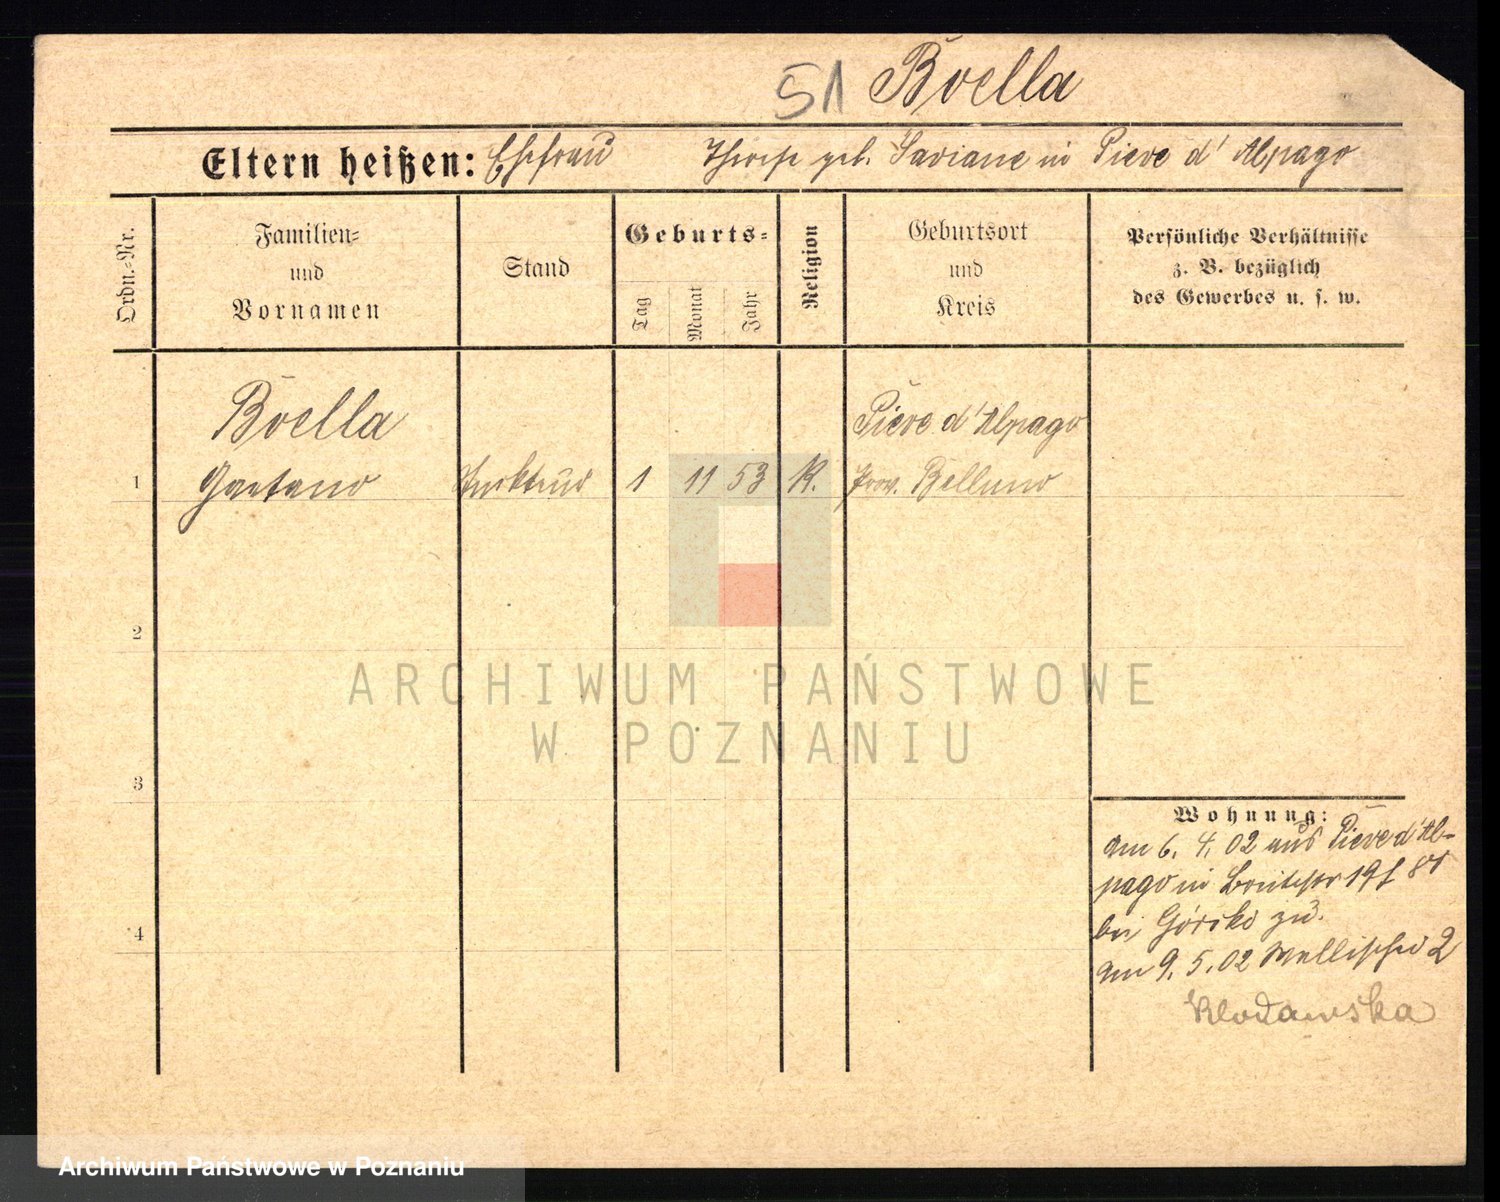 51 Boella
Eltern heißen: Ehefrau Therese geb. Saviane in Pieve d' Alpago
Ordn.-Nr.
Familien-
und
Vornamen
Stand
Geburts-
Tag
Monat
Jahr
Religion
Geburtsort
und
Kreis
Persönliche Verhältnisse
z. B. bezüglich
des Gewerbes u. s. w.
Boella Pieve d'Alpago
1 Gaetano 1 11 53 K. Prov. Belluno
2
3
4
Wohnung:
am 6. 4. 02 aus Pieve d'Al-
pago in 19
bei Górski zu.
am 9. 5. 02 2
Klodawska
ARCHIWUM PAŃSTWOWE
W POZNANIU
Archiwum Państwowe w Poznaniu